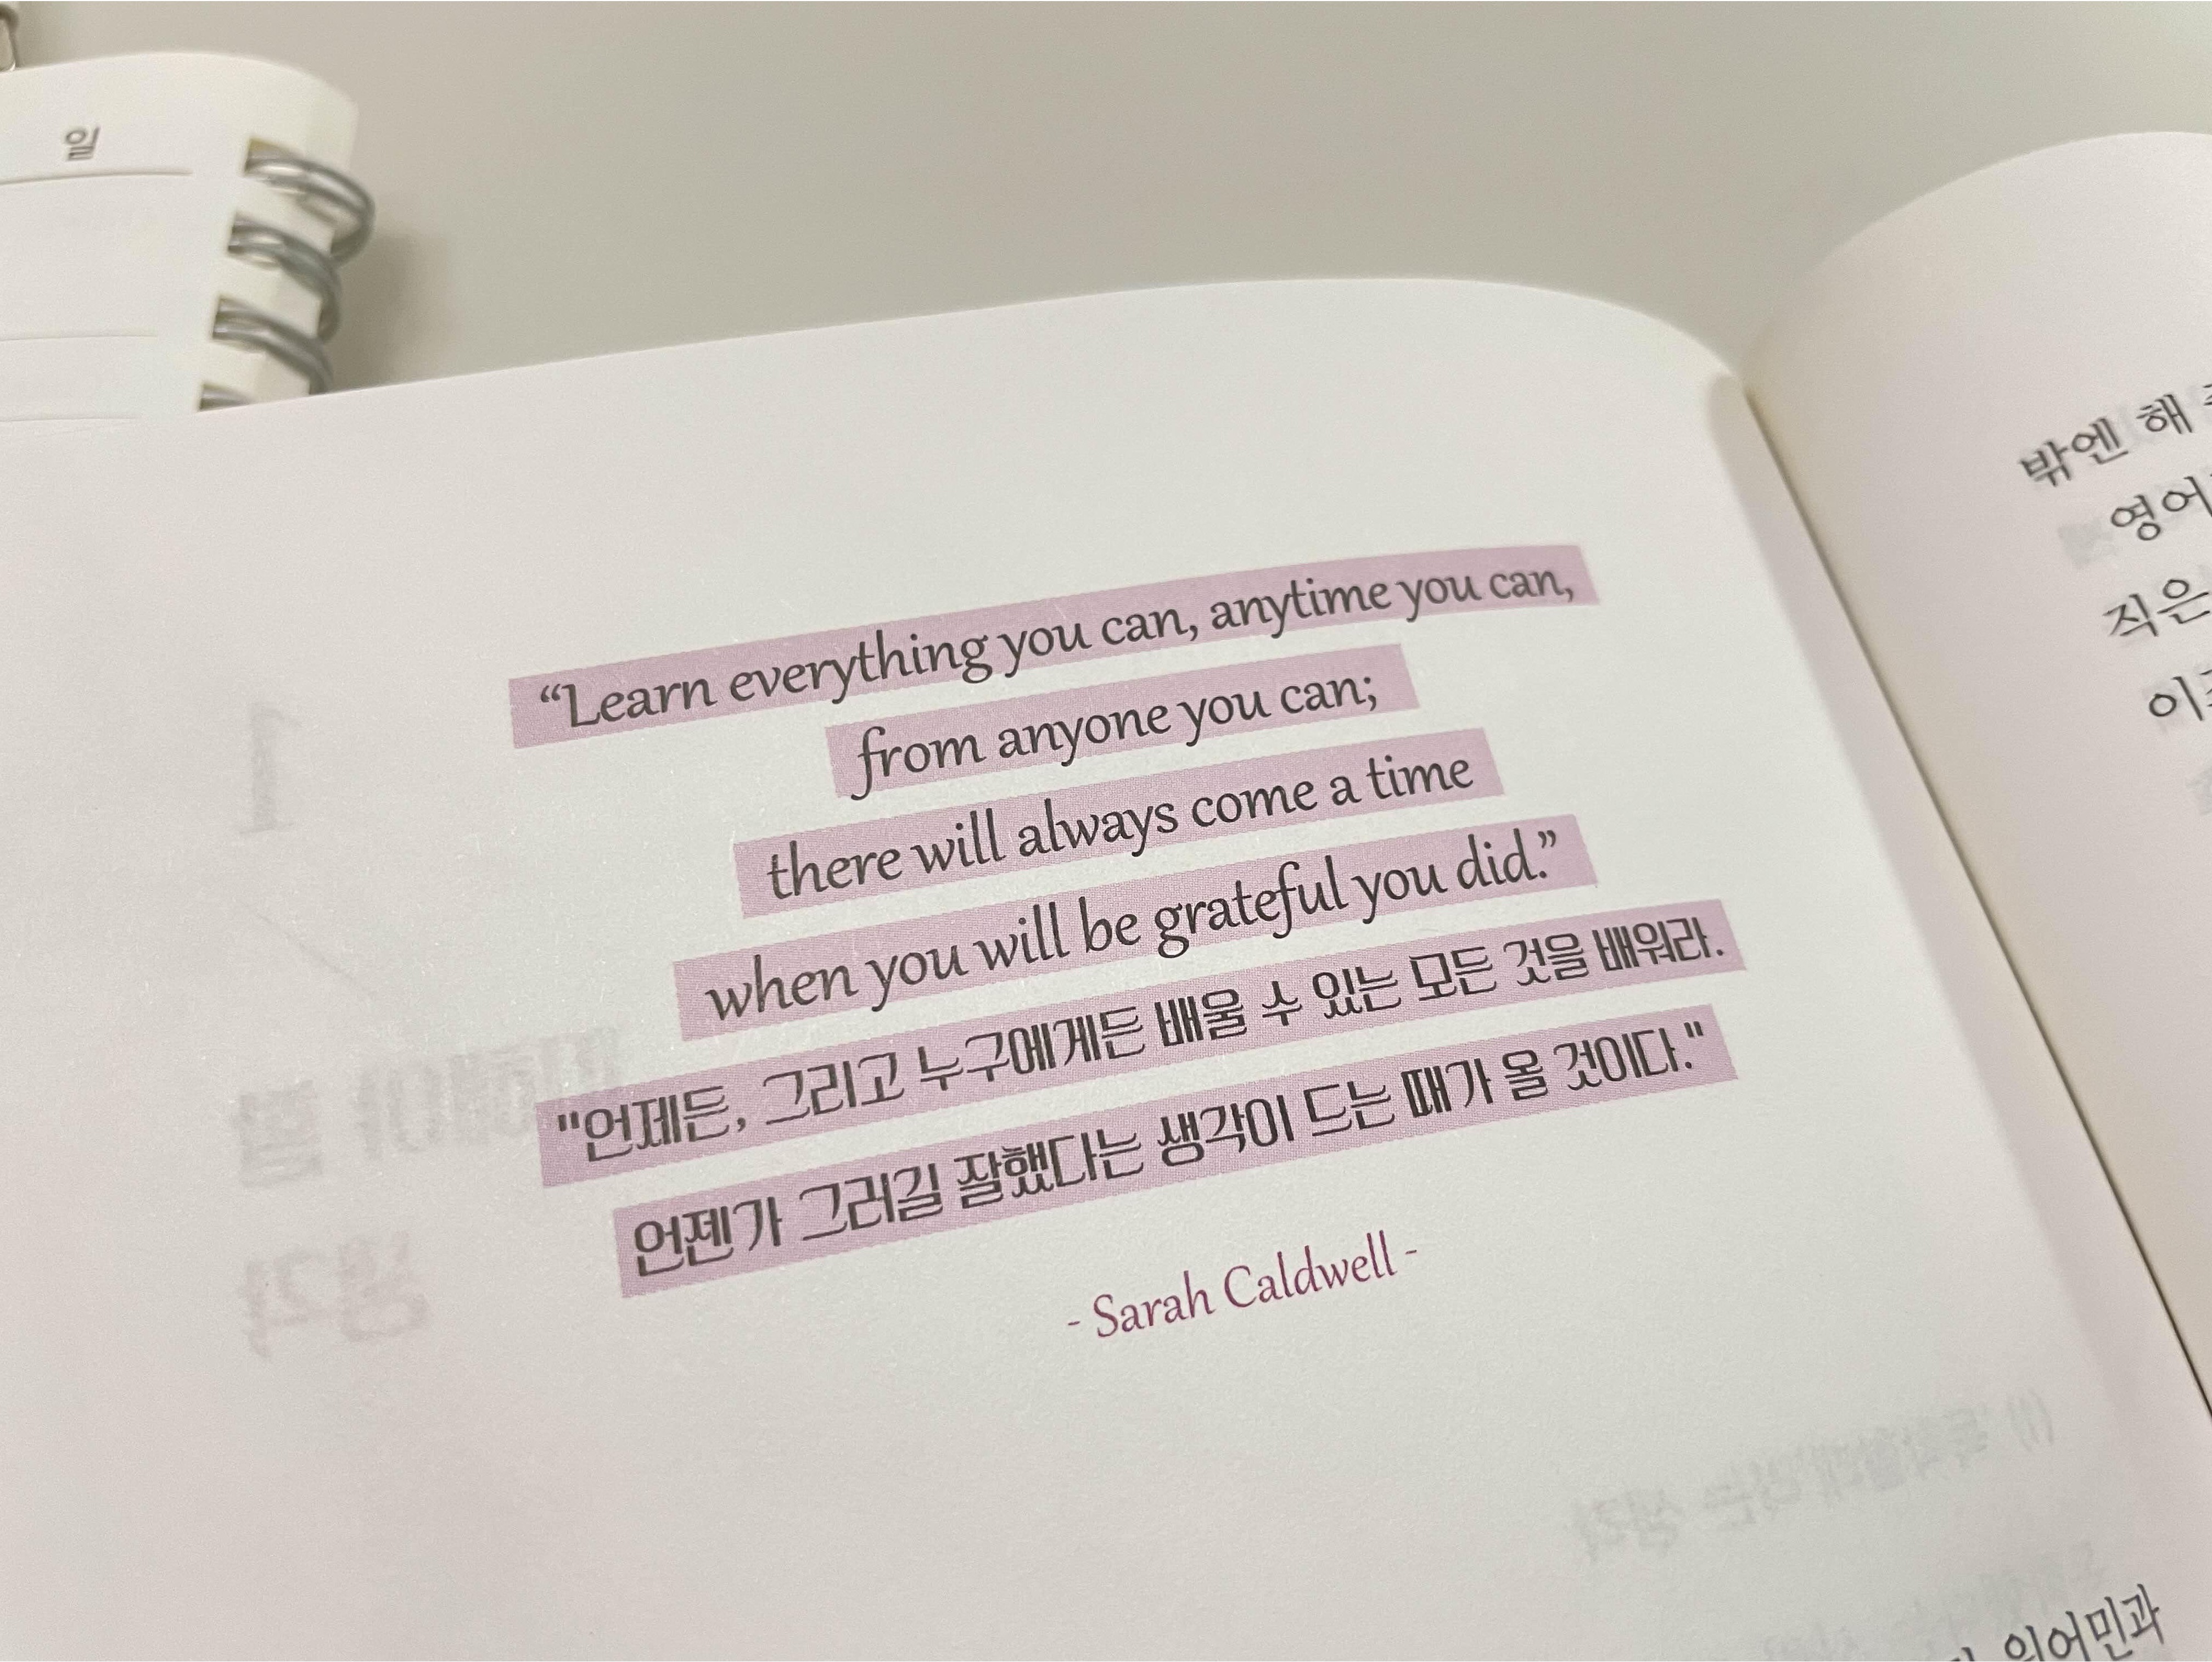 일
“Learn everything you can, anytime you can,
from anyone you can;
there will always come a time
when you will be grateful you did.”
"언제든, 그리고 누구에게든 배울 수 있는 모든 것을 배워라.
언젠가 그러길 잘했다는 생각이 드는 때가 올 것이다."
- Sarah Caldwell -
밖엔 해
영어
직은
원어민과